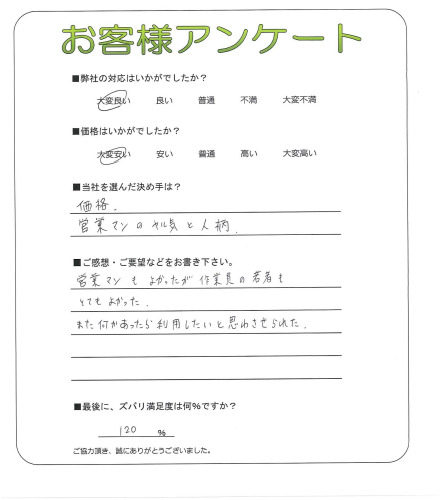 お客様アンケート
■弊社の対応はいかがでしたか？
大変良い 良い 普通 不満 大変不満
■価格はいかがでしたか？
大変安い 安い 普通 高い 大変高い
■当社を選んだ決め手は？
価格.
営業マンのヤル気と人柄.
■ご感想・ご要望などをお書き下さい。
営業マンもよかったが作業員の若者も
とてもよかった.
また何かあったら利用したいと思わさせられた.
■最後に、ズバリ満足度は何％ですか？
120 %
ご協力頂き、誠にありがとうございました。